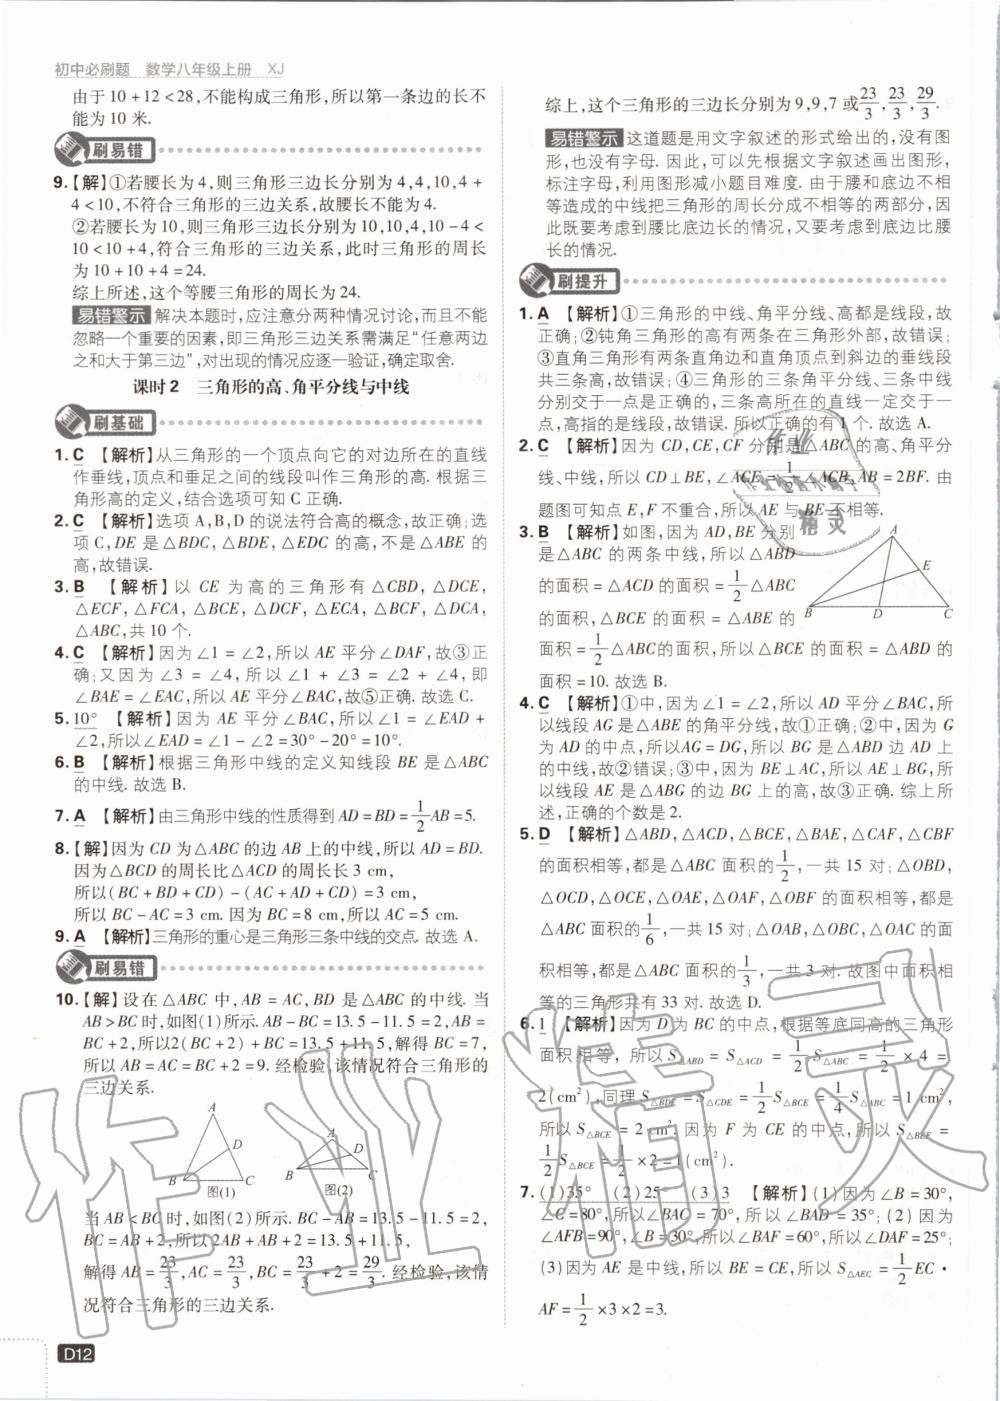 初中必刷题 数学八年级上册 XJ
由于10+12<28,不能构成三角形,所以第一条边的长不
能为10米.
刷易错
9.【解】①若腰长为4,则三角形三边长分别为4,4,10,4+
4<10,不符合三角形的三边关系,故腰长不能为4.
②若腰长为10,则三角形三边长分别为10,10,4,10-4<
10<10+4,符合三角形的三边关系,此时三角形的周长
为10+10+4=24.
综上所述,这个等腰三角形的周长为24.
易错警示 解决本题时,应注意分两种情况讨论,而且不能
忽略一个重要的因素,即三角形三边关系需满足“任意两边
之和大于第三边”,对出现的情况应逐一验证,确定取舍.
课时2 三角形的高、角平分线与中线
刷基础
1.C 【解析】从三角形的一个顶点向它的对边所在的直线
作垂线,顶点和垂足之间的线段叫作三角形的高. 根据三
角形高的定义,结合选项可知C正确.
2.C 【解析】选项A,B,D的说法符合高的概念,故正确;选
项C,DE是△BDC,△BDE,△EDC的高,不是△ABE的
高,故错误.
3.B 【解析】以CE为高的三角形有△CBD,△DCE,
△ECF,△FCA,△BCE,△DCF,△ECA,△BCF,△DCA,
△ABC,共10个.
4.C 【解析】因为∠1=∠2,所以AE平分∠DAF,故③正
确;又因为∠3=∠4,所以∠1+∠3=∠2+∠4,即
∠BAE=∠EAC,所以AE平分∠BAC,故⑤正确. 故选C.
5.10° 【解析】因为AE平分∠BAC,所以∠1=∠EAD+
∠2,所以∠EAD=∠1-∠2=30°-20°=10°.
6.B 【解析】根据三角形中线的定义知线段BE是△ABC
的中线. 故选B.
7.A 【解析】由三角形中线的性质得到AD=BD=1/2AB=5.
8.【解】因为CD为△ABC的边AB上的中线,所以AD=BD.
因为△BCD的周长比△ACD的周长长3 cm,
所以(BC+BD+CD)-(AC+AD+CD)=3 cm,
所以BC-AC=3 cm. 因为BC=8 cm,所以AC=5 cm.
9.A 【解析】三角形的重心是三角形三条中线的交点. 故选A.
刷易错
10.【解】设在△ABC中,AB=AC,BD是△ABC的中线. 当
AB>BC时,如图(1)所示. AB-BC=13.5-11.5=2,AB=
BC+2,所以2(BC+2)+BC=13.5+11.5,解得BC=7,
所以AB=AC=BC+2=9. 经检验,该情况符合三角形的
三边关系.
A
D
B
C
图(1)
A
D
B
C
图(2)
当AB<BC时,如图(2)所示. BC-AB=13.5-11.5=2,
BC=AB+2,所以2AB+AB+2=13.5+11.5,
解得AB=23/3,AC=23/3,BC=23/3+2=29/3. 经检验,该情
况符合三角形的三边关系.
D12
综上,这个三角形的三边长分别为9,9,7或23/3,23/3,29/3.
易错警示 这道题是用文字叙述的形式给出的,没有图形,
也没有字母. 因此,可以先根据文字叙述画出图形,
标注字母,利用图形减小题目难度. 由于腰和底边不相
等造成的中线把三角形的周长分成不相等的两部分,因
此既要考虑到腰比底边长的情况,又要考虑到底边比腰
长的情况.
刷提升
1.A 【解析】①三角形的中线、角平分线、高都是线段,故
正确;②钝角三角形的高有两条在三角形外部,故错误;
③直角三角形有两条直角边和直角顶点到斜边的垂线段
共三条高,故错误;④三角形的三条角平分线、三条中线
分别交于一点是正确的,三条高所在的直线一定交于一
点,高指的是线段,故错误. 所以正确的有1个. 故选A.
2.C 【解析】因为CD,CE,CF分别是△ABC的高、角平分
线、中线,所以CD⊥BE,∠ACE=1/2∠ACB,AB=2BF. 由
题图可知点E,F不重合,所以AE与BE不相等.
3.B 【解析】如图,因为AD,BE分别
是△ABC的两条中线,所以△ABD
的面积=△ACD的面积=1/2△ABC
的面积,△BCE的面积=△ABE的
面积=1/2△ABC的面积,所以△BCE的面积=△ABD的
面积=10. 故选B.
A
E
B
D
C
4.C 【解析】①中,因为∠1=∠2,所以AD平分∠BAC,所
以线段AG是△ABE的角平分线,故①正确;②中,因为G
为AD的中点,所以AG=DG,所以BG是△ABD边AD上
的中线,故②错误;③中,因为BE⊥AC,所以AE⊥BG,所
以线段AE是△ABG的边BG上的高,故③正确. 综上所
述,正确的个数是2.
5.D 【解析】△ABD,△ACD,△BCE,△BAE,△CAF,△CBF
的面积相等,都是△ABC面积的1/2,一共15对;△OBD,
△OCD,△OCE,△OAE,△OAF,△OBF的面积相等,都是
△ABC面积的1/6,一共15对;△OAB,△OBC,△OAC的面
积相等,都是△ABC面积的1/3,一共3对. 故图中面积相
等的三角形共有33对. 故选D.
6.1 【解析】因为D为BC的中点,根据等底同高的三角形
面积相等,所以S△ABD=S△ACD=1/2S△ABC=1/2×4=
2(cm²),同理S△BDE=S△CDE=1/2S△BCE=1/4S△ABC=1 cm²,
所以S△BCE=2 cm². 因为F为CE的中点,所以S△BEF=
1/2S△BCE=1/2×2=1(cm²).
7.(1)35° (2)25° (3)3 【解析】(1)因为∠B=30°,
∠C=80°,所以∠BAC=70°,所以∠BAD=35°;(2)因为
∠AFB=90°,∠B=30°,所以∠BAF=60°,所以∠DAF=25°;
(3)因为AE是中线,所以BE=CE,所以S△AEC=1/2EC·
AF=1/2×3×2=3.
作业精灵